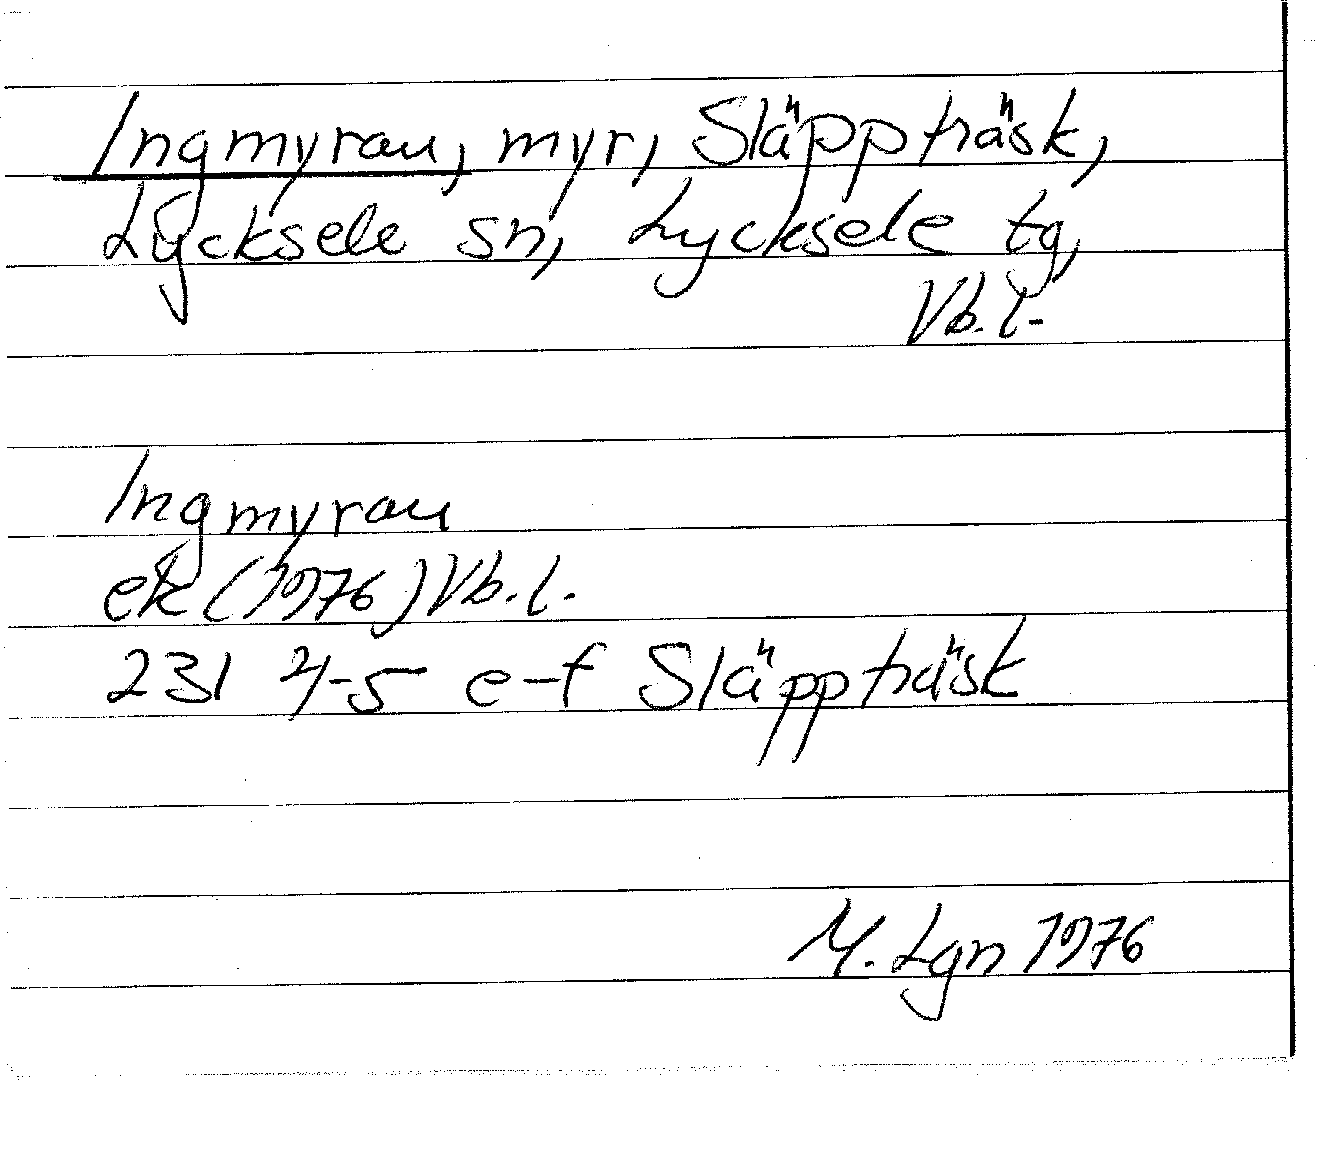 Ingmyran, myr, Släppträsk,
Lycksele sn, Lycksele tg,
Vb.l.
Ingmyran
ek (1976) Vb.l.
231 4-5 e-f Släppträsk
M. Lgn 1976